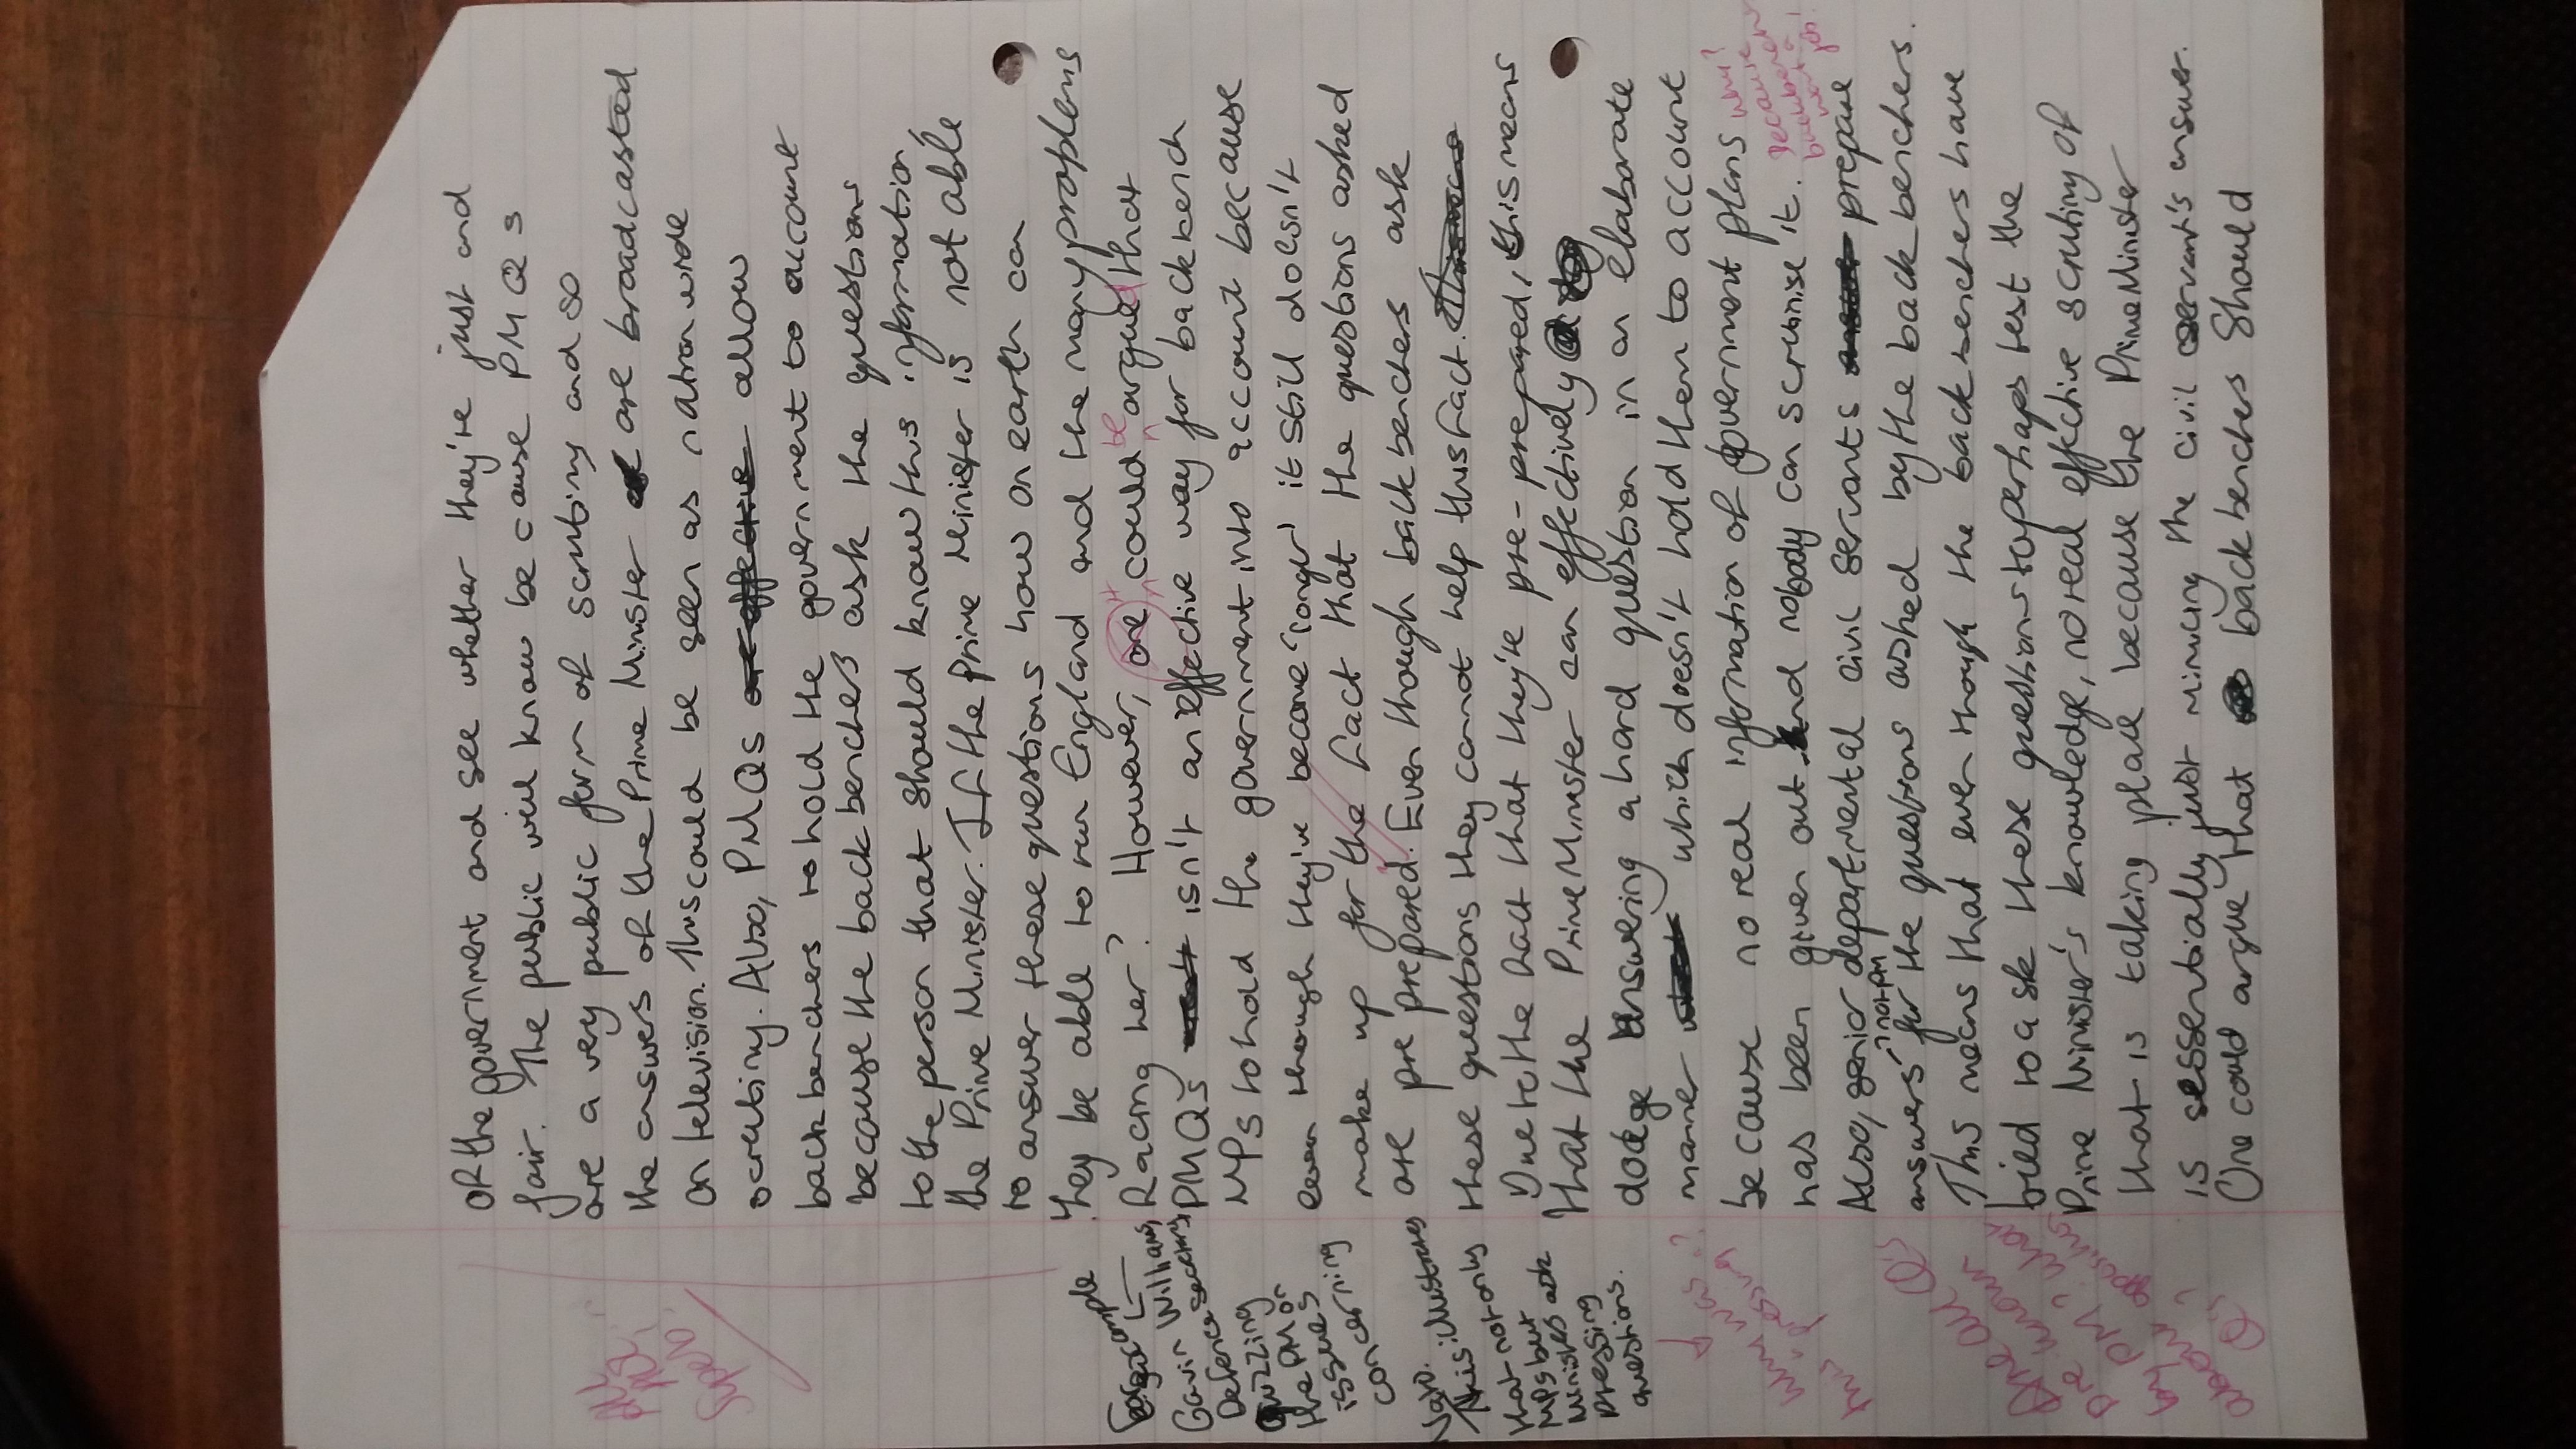 of the government and see whether they're just and
fair. The public will know because PMQs
are a very public form of scrutiny and so
the answers of the Prime Minister are broadcasted
on television. This could be seen as nation wide
scrutiny. Also, PMQs are effective allow
backbenchers to hold the government to account
because the back benches ask the questions
to the person that should know this information,
the Prime Minister. If the Prime Minister is not able
to answer these questions how on earth can
they be able to run England and the many problems
facing her? However, one could be argued that
PMQs isn't an effective way for backbench
MPs to hold the government into account because
even though they've become 'longer' it still doesn't
make up for the fact that the questions asked
are pre prepared. Even though back benches ask
these questions they cannot help this fact.
Due to the fact that they're pre-prepared, this means
that the Prime Minister can effectively
dodge answering a hard question in an elaborate
manner which doesn't hold them to account
because no real information of government plans
has been given out and nobody can scrutinise it.
why?
because
backbench
Also, senior departmental civil servants prepare
answers for the questions asked by the back benchers.
not PM
This means that even though the back benches have
tried to ask these questions to perhaps test the
Prime Minister's knowledge, no real effective scrutiny of
that is taking place because the Prime Minister
is essentially just miming the civil servant's answer.
One could argue that back benches should
example
Gavin Williams,
Defence secretary
quizzing
the PM on
issues
concerning
Nato. Illustrates
This not only
that not only
MPs but
Ministers ask
pressing
questions.